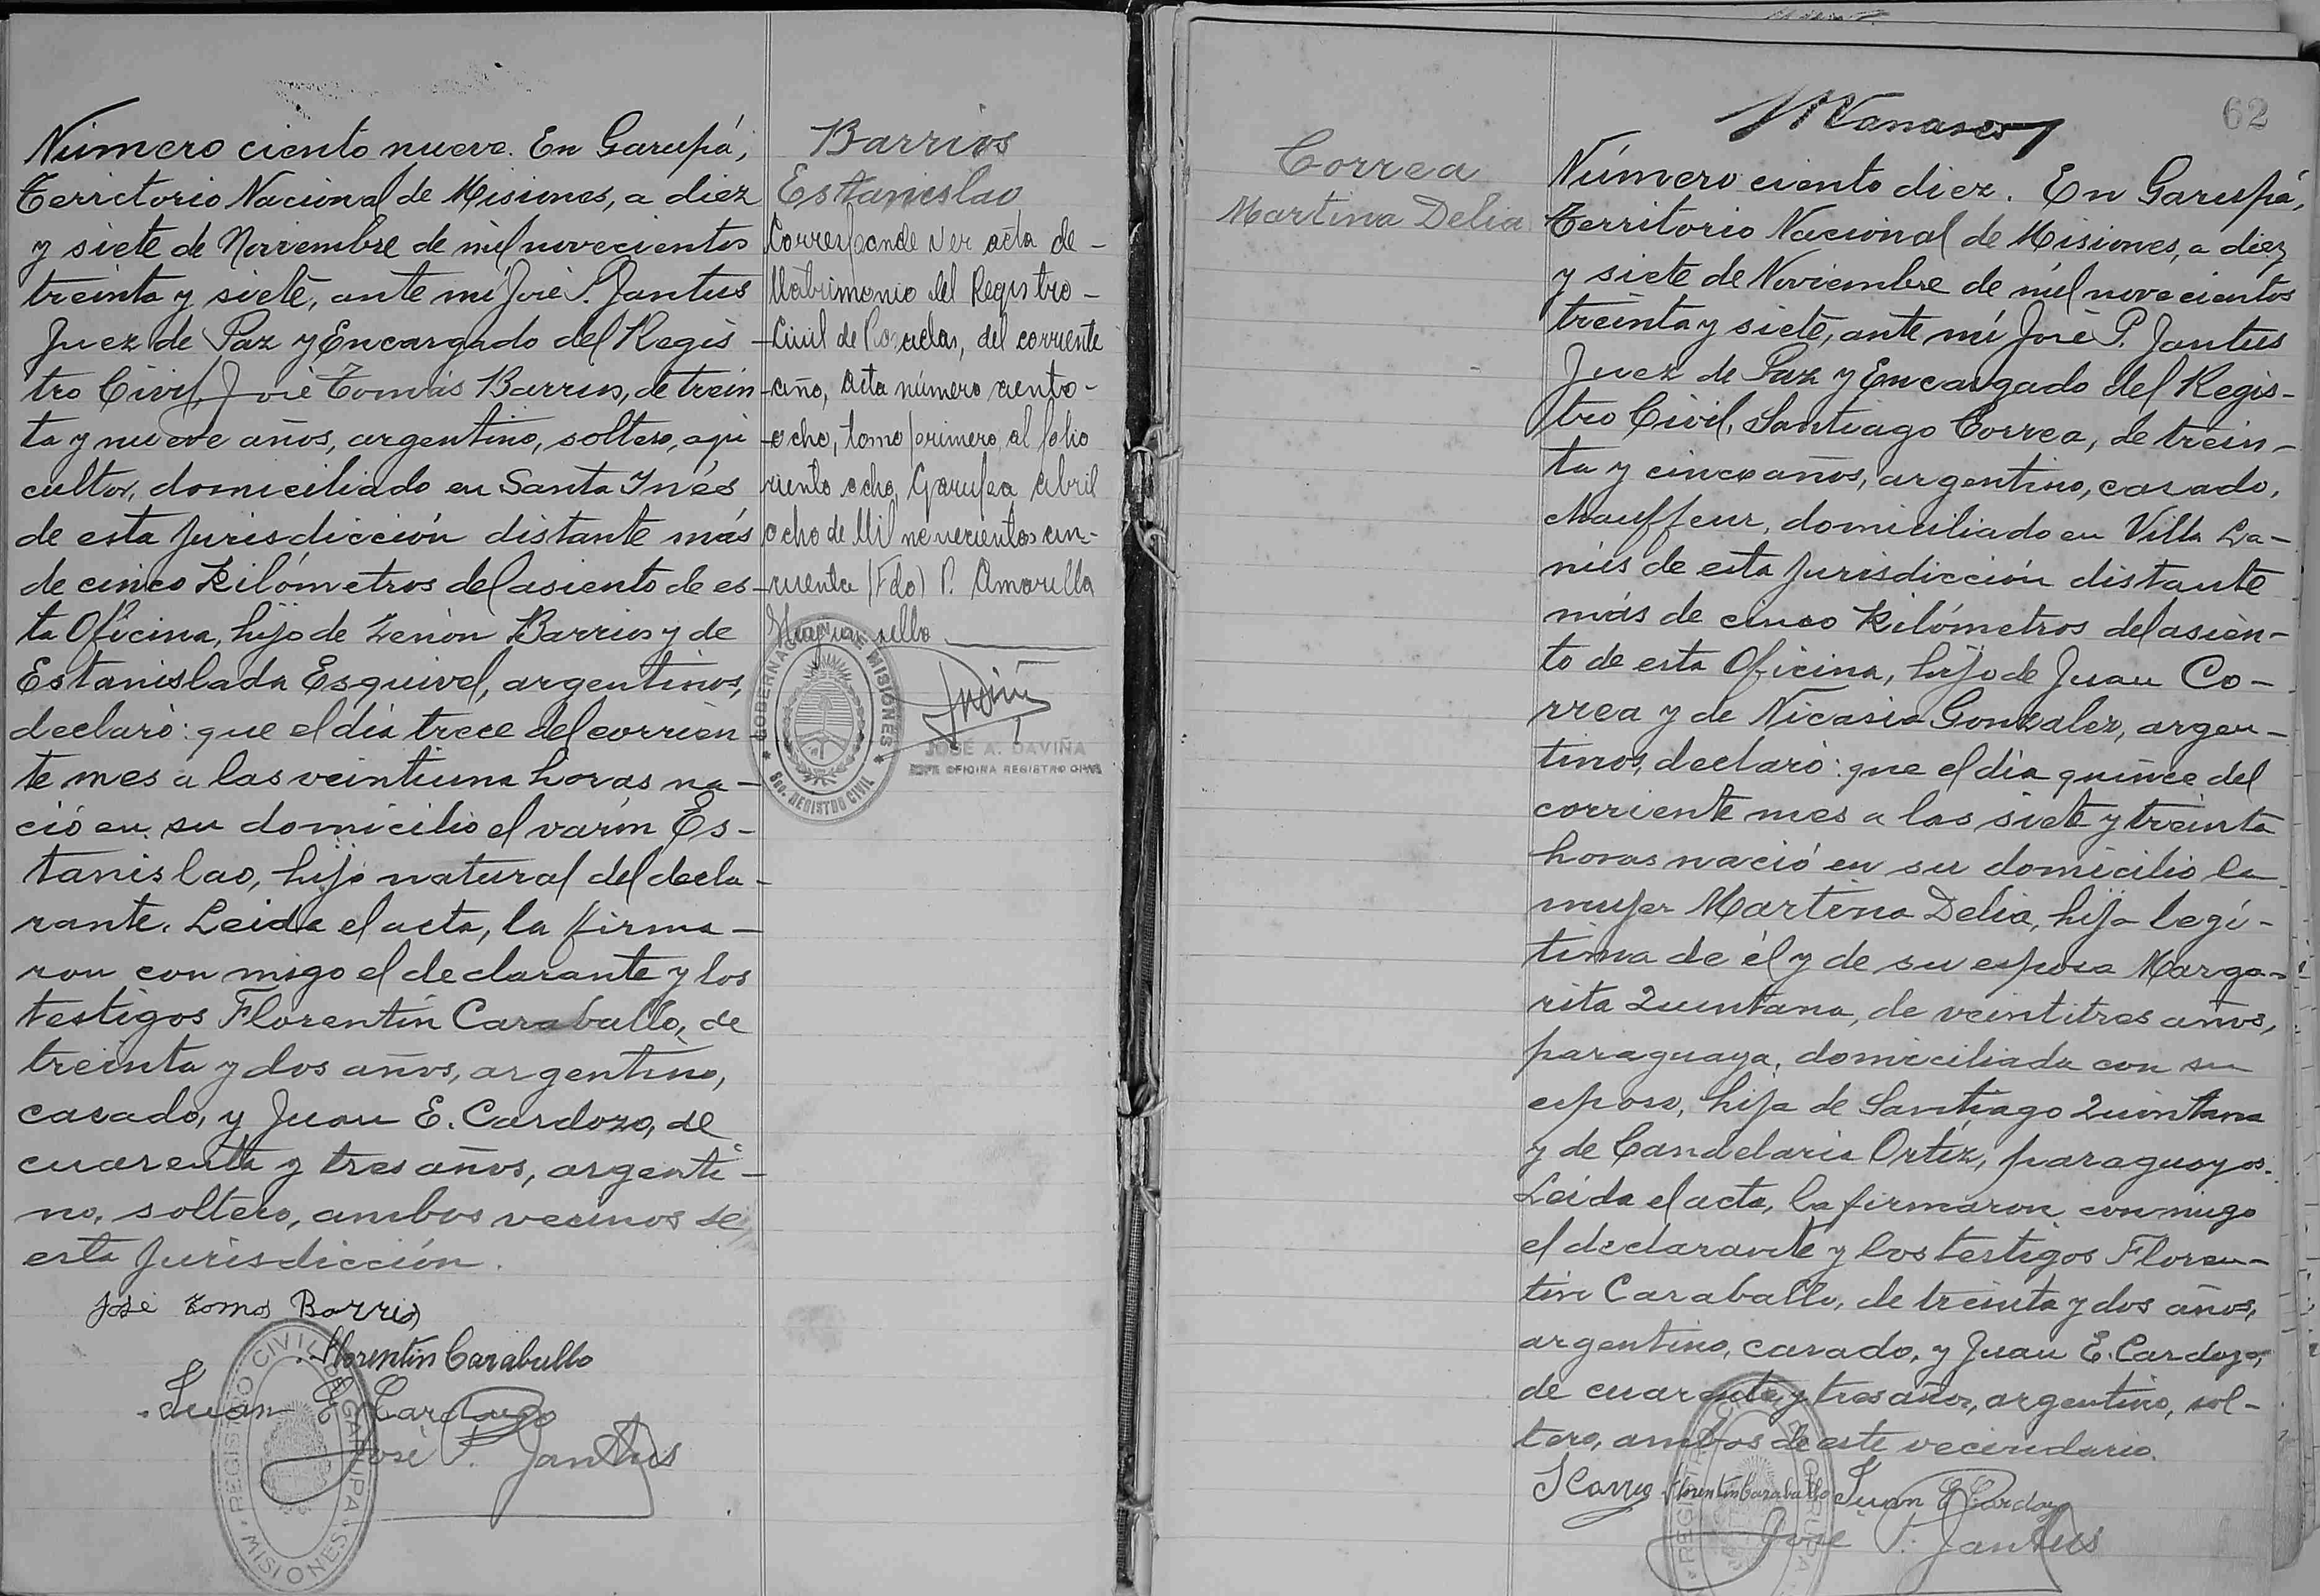 Número ciento nueve. En Garupá,
Terrictorio Nacional de Misiones, a diez
y siete de Noviembre de mil novecientos
treinta y siete, ante mí José P. Jantus
Juez de Paz y Encargado del Regis
tro Civil, José Tomás Barrios, de trein
ta y nueve años, argentino, soltero, agri
cultor, domiciliado en Santa Inés
de esta Jurisdicción distante más
de cinco Kilómetros del asiento de es-
ta Oficina, hijo de Zenón Barrios y de
Estanislada Esquivel, argentinos,
declaró: que el día trece del corrien
te mes a las veintiuna horas na-
ció en su domicilio el varón Es-
tanislao, hijo natural del decla-
rante. Leida el acta, la firma-
ron con migo el declarante y los
testigos Florentín Caraballo, de
treinta y dos años, argentino,
casado, y Juan E. Cardozo, de
cuarenta y tres años, argenti-
no, soltero, ambos vecinos de
esta Jurisdicción.
José Tomas Barrios
Florentín Caraballo
Juan E Cardozo
José P. Jantus
REGISTRO CIVIL DE GARUPA
MISIONES
Barrios
Estanislao
Corresponde ver acta de-
Matrimonio del Registro-
-Civil de Posadas, del corriente
-año, acta número ciento-
-ocho, tomo primero, al folio
ciento ocho, Garupa Abril
ocho de Mil novecientos cin-
-cuenta (Fdo) P. Amarilla
Hay un sello
GOBERNACION DE MISIONES
Scc. REGISTRO CIVIL
JOSE A. DAVIÑA
JEFE OFICINA REGISTRO CIVIL
62
Correa
Martina Delia
Número ciento diez. En Garupá,
Territorio Nacional de Misiones, a diez
y siete de Noviembre de mil novecientos
treinta y siete, ante mí José P. Jantus
Juez de Paz y Encargado del Regis-
tro Civil, Santiago Correa, de trein-
ta y cinco años, argentino, casado,
chauffeur, domiciliado en Villa La-
nús de esta Jurisdicción distante
más de cinco Kilómetros del asien-
to de esta Oficina, hijo de Juan Co-
rrea y de Nicasia Gonzalez, argen-
tinos, declaró: que el día quince del
corriente mes a las siete y treinta
horas nació en su domicilio la
mujer Martina Delia, hija legí-
tima de él y de su esposa Marga-
rita Quintana, de veintitres años,
paraguaya, domiciliada con su
esposo, hija de Santiago Quintana
y de Candelaria Ortíz, paraguayos.
Leida el acta, la firmaron conmigo
el declarante y los testigos Floren-
tín Caraballo, de treinta y dos años,
argentino, casado, y Juan E. Cardozo,
de cuarenta y tres años, argentino, sol-
tero, ambos de este vecindario.
S Correa Florentín Caraballo Juan E Cardozo
José P. Jantus